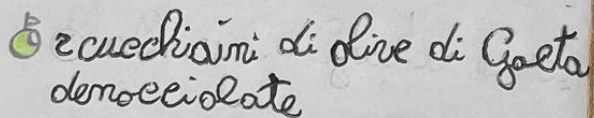 2 cucchiaini di olive di Gaeta
denocciolate